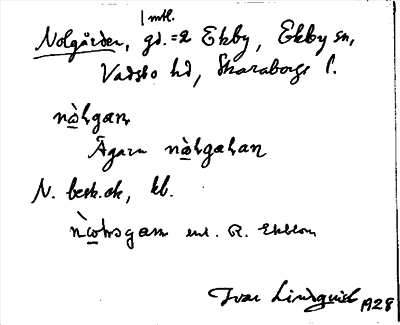 1 mtl.
Nolgården, gd. = 2 Ekby, Ekby sn,
Vadsbo hd, Skaraborgs l.
Ägaren
N. besk. ek, kb.
enl. R. Ekblom
Ivar Lindquist 1928